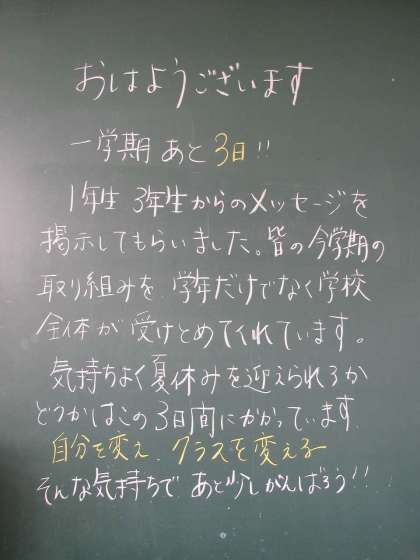 おはようございます
一学期 あと 3日!!
1年生 3年生からのメッセージを
掲示してもらいました。皆の今学期の
取り組みを 学年だけでなく学校
全体が 受けとめてくれています。
気持ちよく夏休みを迎えられるか
どうかはこの3日間にかかっています
自分を変え、クラスを変える
そんな気持ちで あと少しがんばろう!!